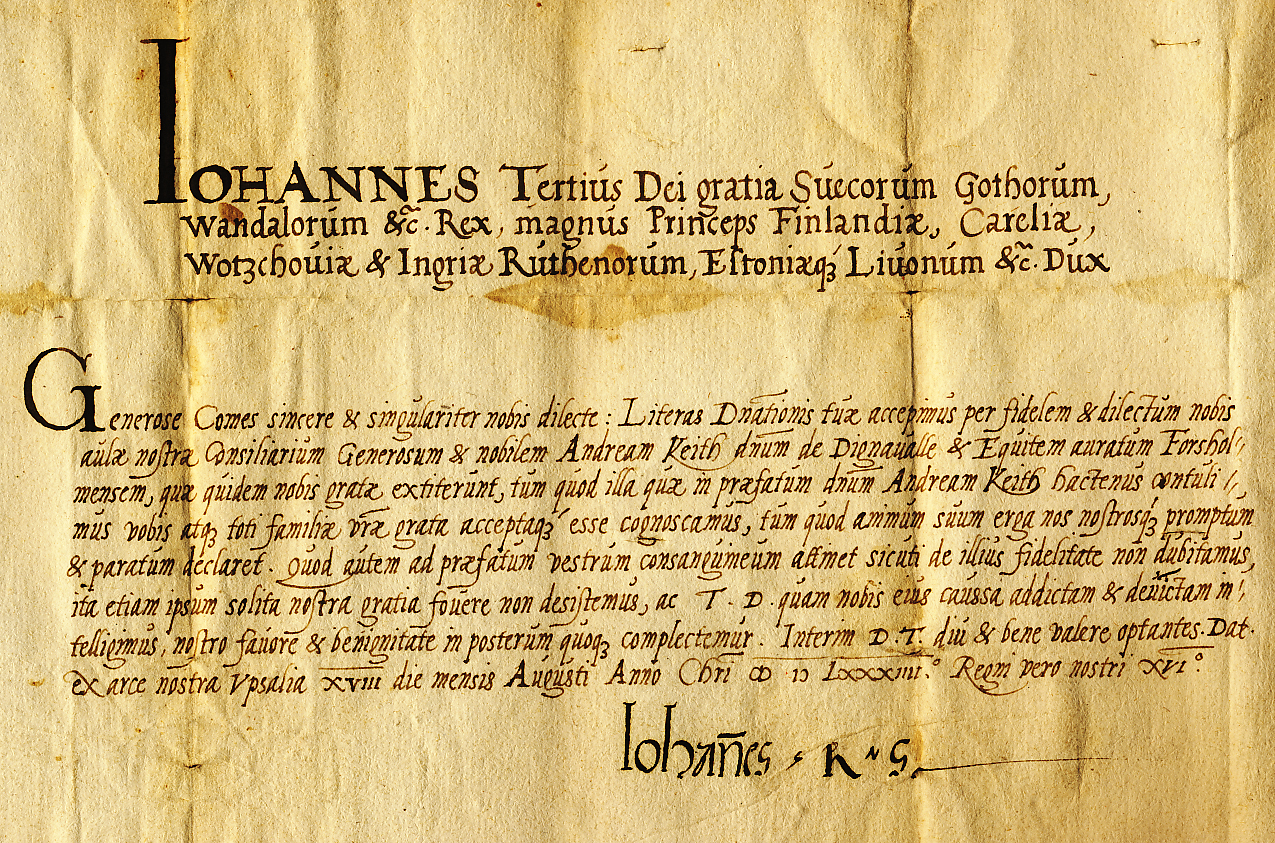 IOHANNES Tertius Dei gratia Suecorum Gothorum,
Wandalorum &c̃. Rex, magnus Princeps Finlandiæ, Careliæ,
Wotzchouiæ & Ingriæ Ruthenorum, Estoniæq́ꝫ Liuonum &c̃. Dux
Generose Comes sincere & singulariter nobis dilecte: Literas Dnationis tuæ accepimus per fidelem & dilectum nobis
aulæ nostræ Consiliarium Generosum & nobilem Andream Keith dnum de Dignaualle & Equitem auratum Forshol-
mensem, quæ quidem nobis gratæ extiterunt, tum quod illa quæ in præfatum dnum Andream Keith hactenus contuli-
mus vobis atqꝫ toti familiæ vræ grata acceptaqꝫ esse cognoscamus, tum quod animum suum erga nos nostrosqꝫ promptum
& paratum declaret. Quod autem ad præfatum vestrum consanguineum attinet sicuti de illius fidelitate non dubitamus,
ita etiam ipsum solita nostra gratia fouere non desistemus, ac T. D. quam nobis eius caussa addictam & deuictam in-
telligimus, nostro fauore & benignitate in posterum quoqꝫ complectemur. Interim D. T. diu & bene valere optantes. Dat.
ex arce nostra Vpsalia xviii die mensis Augusti Anno Chri ↀ ·IↃ LXXXIIII.° Regni vero nostri XVI°.
Iohan̄es · R · S.